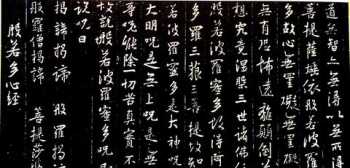 道無智亦無得以無所得
菩提薩埵依般若波羅
多故心無罣礙無罣礙
無有恐怖遠離顛倒
想究竟涅槃三世諸佛
般若波羅蜜多故得阿
多羅三藐三菩提故知
若波羅蜜多是大神咒
大明咒是無上咒是
等咒能除一切苦真實不
故說般若波羅蜜多咒
說咒曰
揭諦揭諦 般羅揭
般羅僧揭諦 菩提莎婆
般若多心經